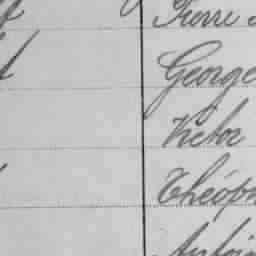 Pierre
George
Victor
Théoph
Antoin